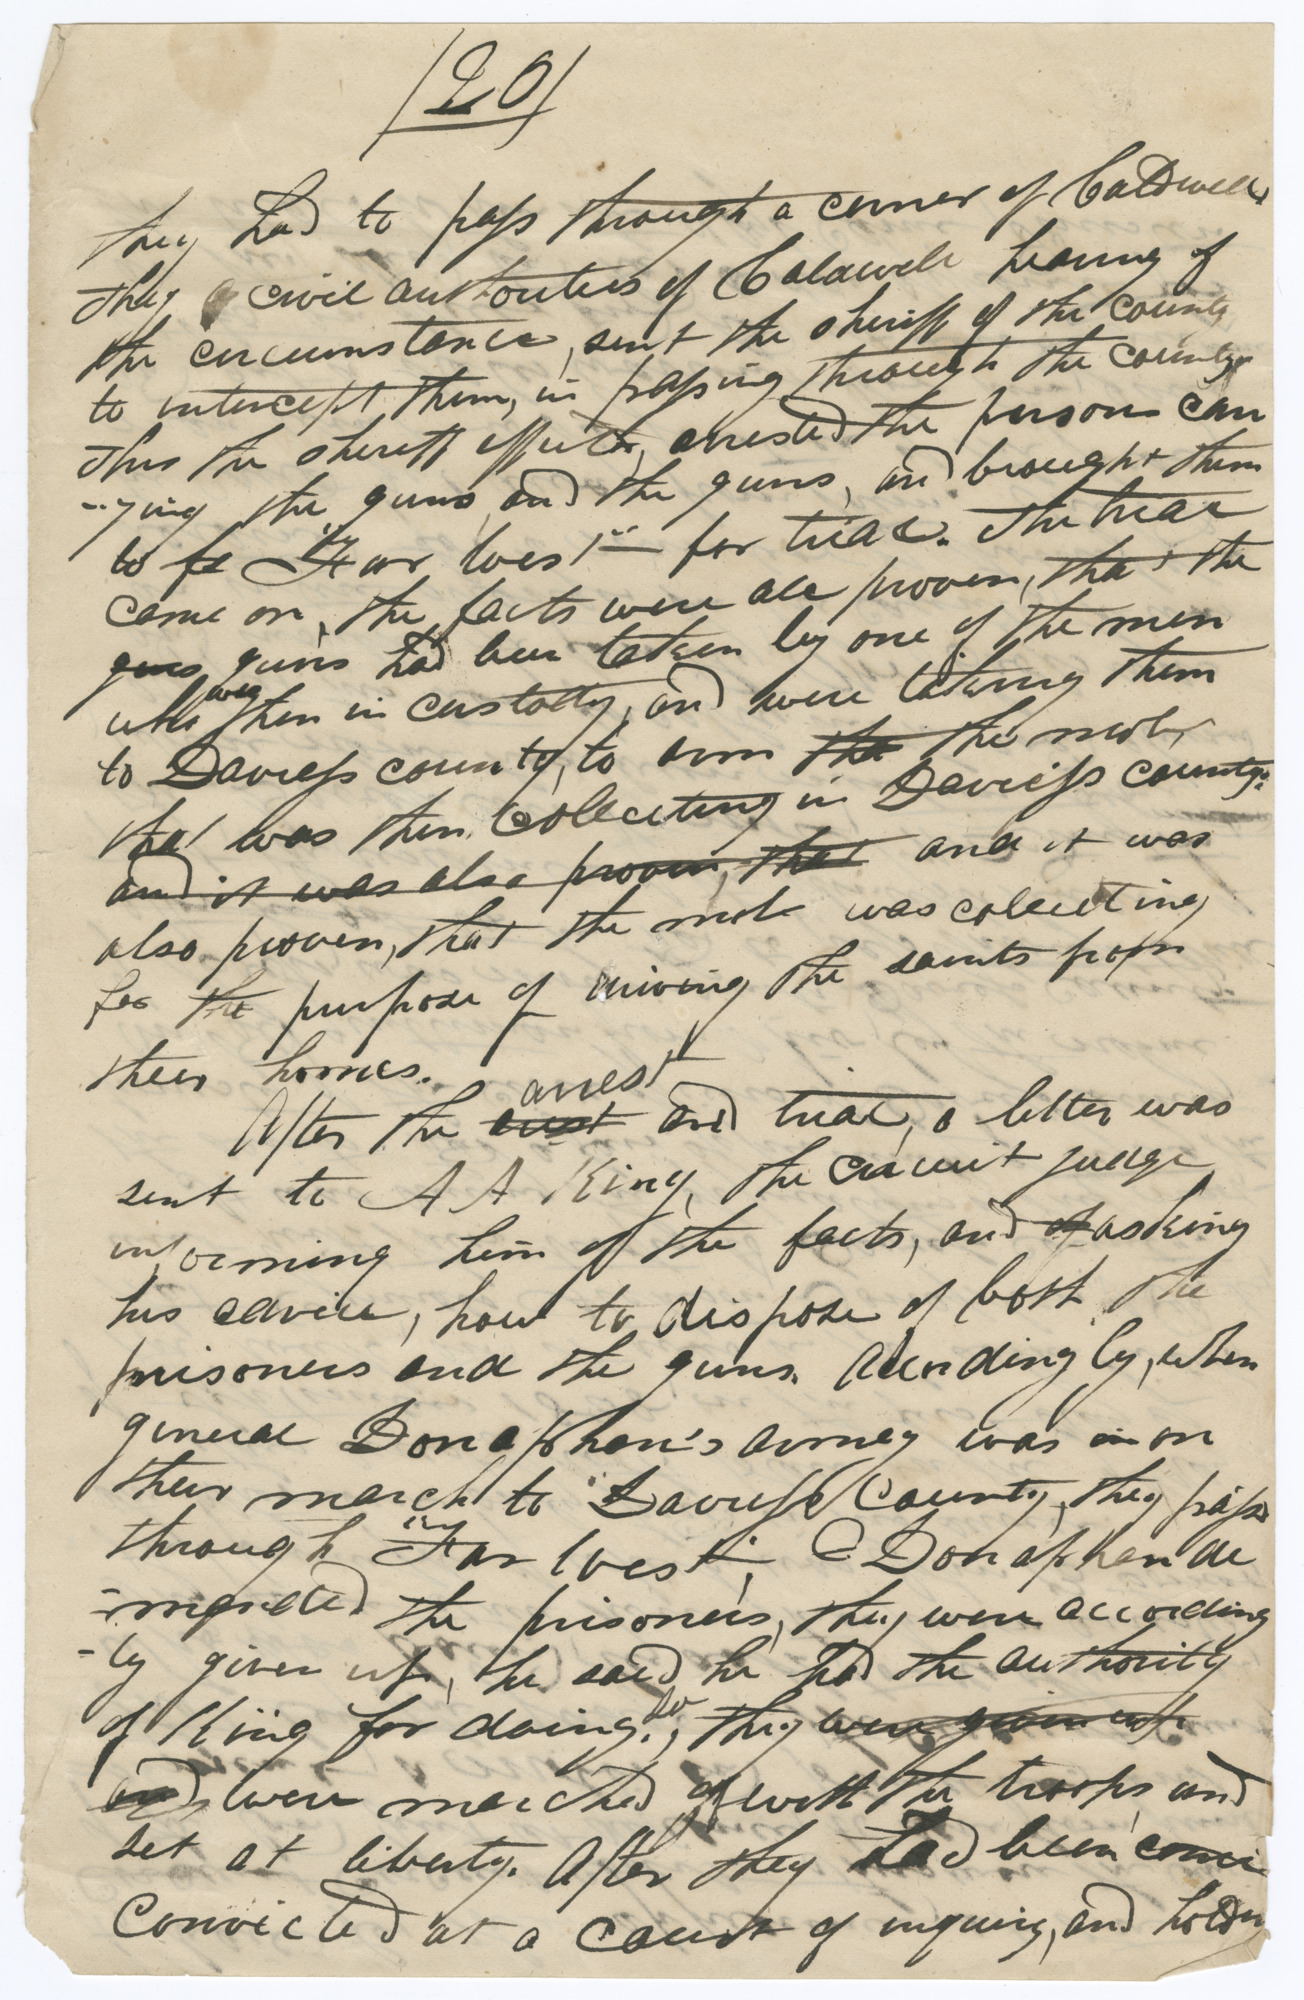 (20)
they had to pass through a corner of Caldwell,
they civil authorities of Caldwell hearing of
the circumstance, sent the sheriff of the county
to intercept them, in passing through the county.
this the sheriff effected, arrested the persons carr
-ying the guns and the guns, and brought them
to fa "Far West" for trial. The trial
came on, the facts were all proven, that the
guns guns had been taken by one of the men
who was then in custotty, and were taking them
to Daviess county, to arm the the mob,
that was then collecting in Daviess county.
and it was also proven, that and it was
also proven, that the mob was collecting
for the purpose of driving the saints from
their homes.
After the arrest and trial, a letter was
sent to A A King, the circuit judge
informing him of the facts, and of asking
his advice, how to dispose of both the
prisoners and the guns. Accordingly, when
general Donaphan's armey was in on
their march to Daviess County, they pass
through "Far West", Donaphan de
-manded the prisoners, they were according
-ly given up, he said he had the authority
of King for doing so, they were given up
and were marched off with the troops, and
set at liberty. After they had been convi
convicted at a court of inquiry, and holden